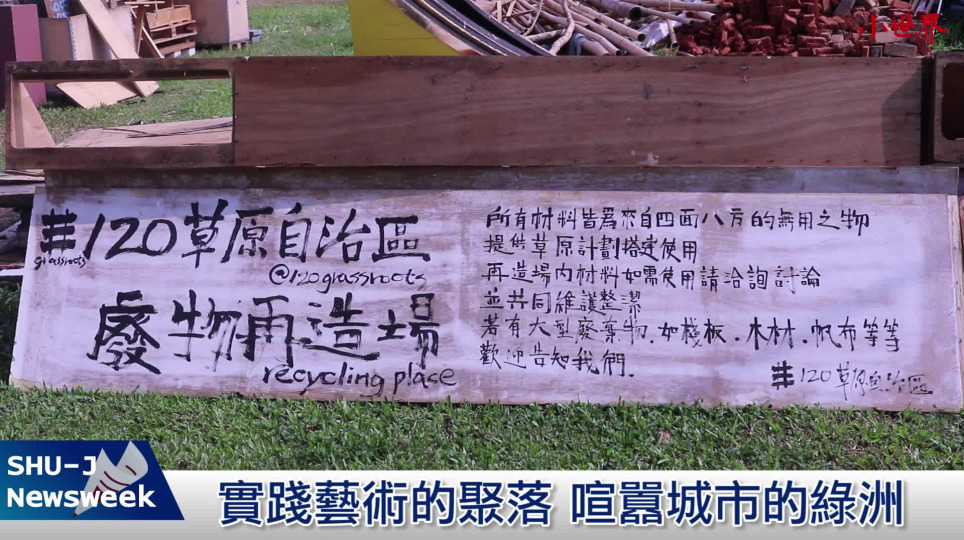 小世界
#120草原自治區
grassroots
@120grassroots
廢物再造場
recycling place
所有材料皆為來自四面八方的無用之物
提供草原計劃搭建使用
再造場內材料如需使用請洽詢討論
並共同維護整潔
若有大型廢棄物.如棧板.木材.帆布等等
歡迎告知我們.
#120草原自治區
SHU-J
Newsweek
實踐藝術的聚落 喧囂城市的綠洲